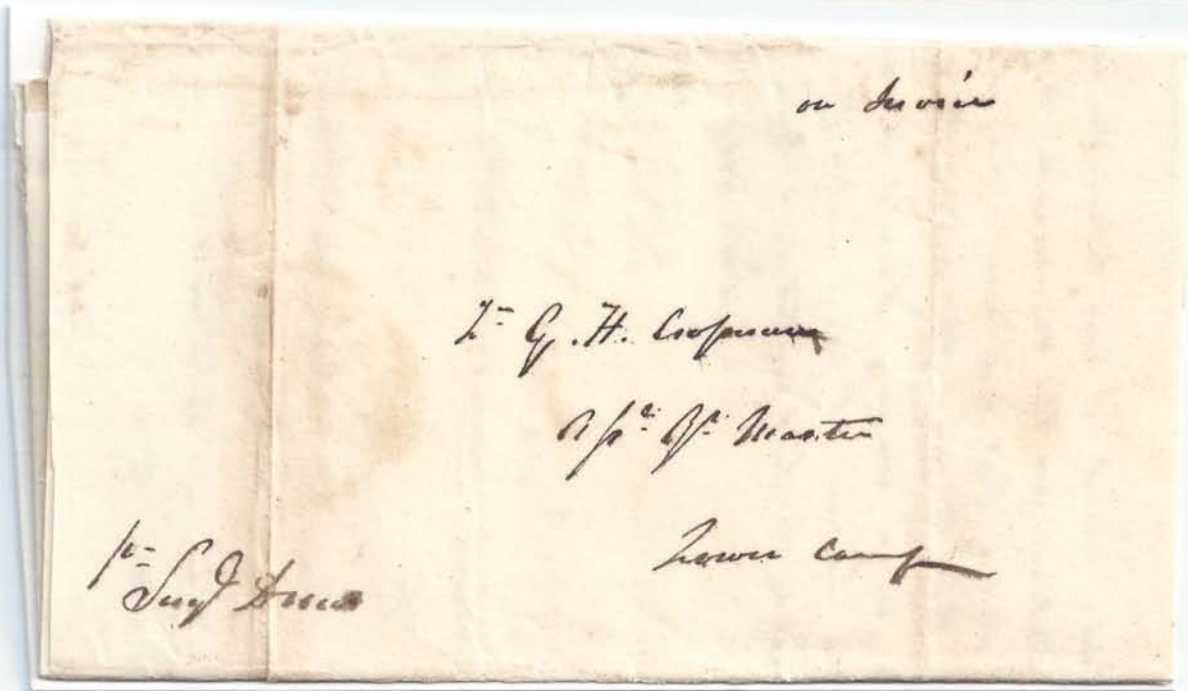 on Service
Lt G. H. Crossman
Asst Qr Master
Lower Camp
pr
Sergt